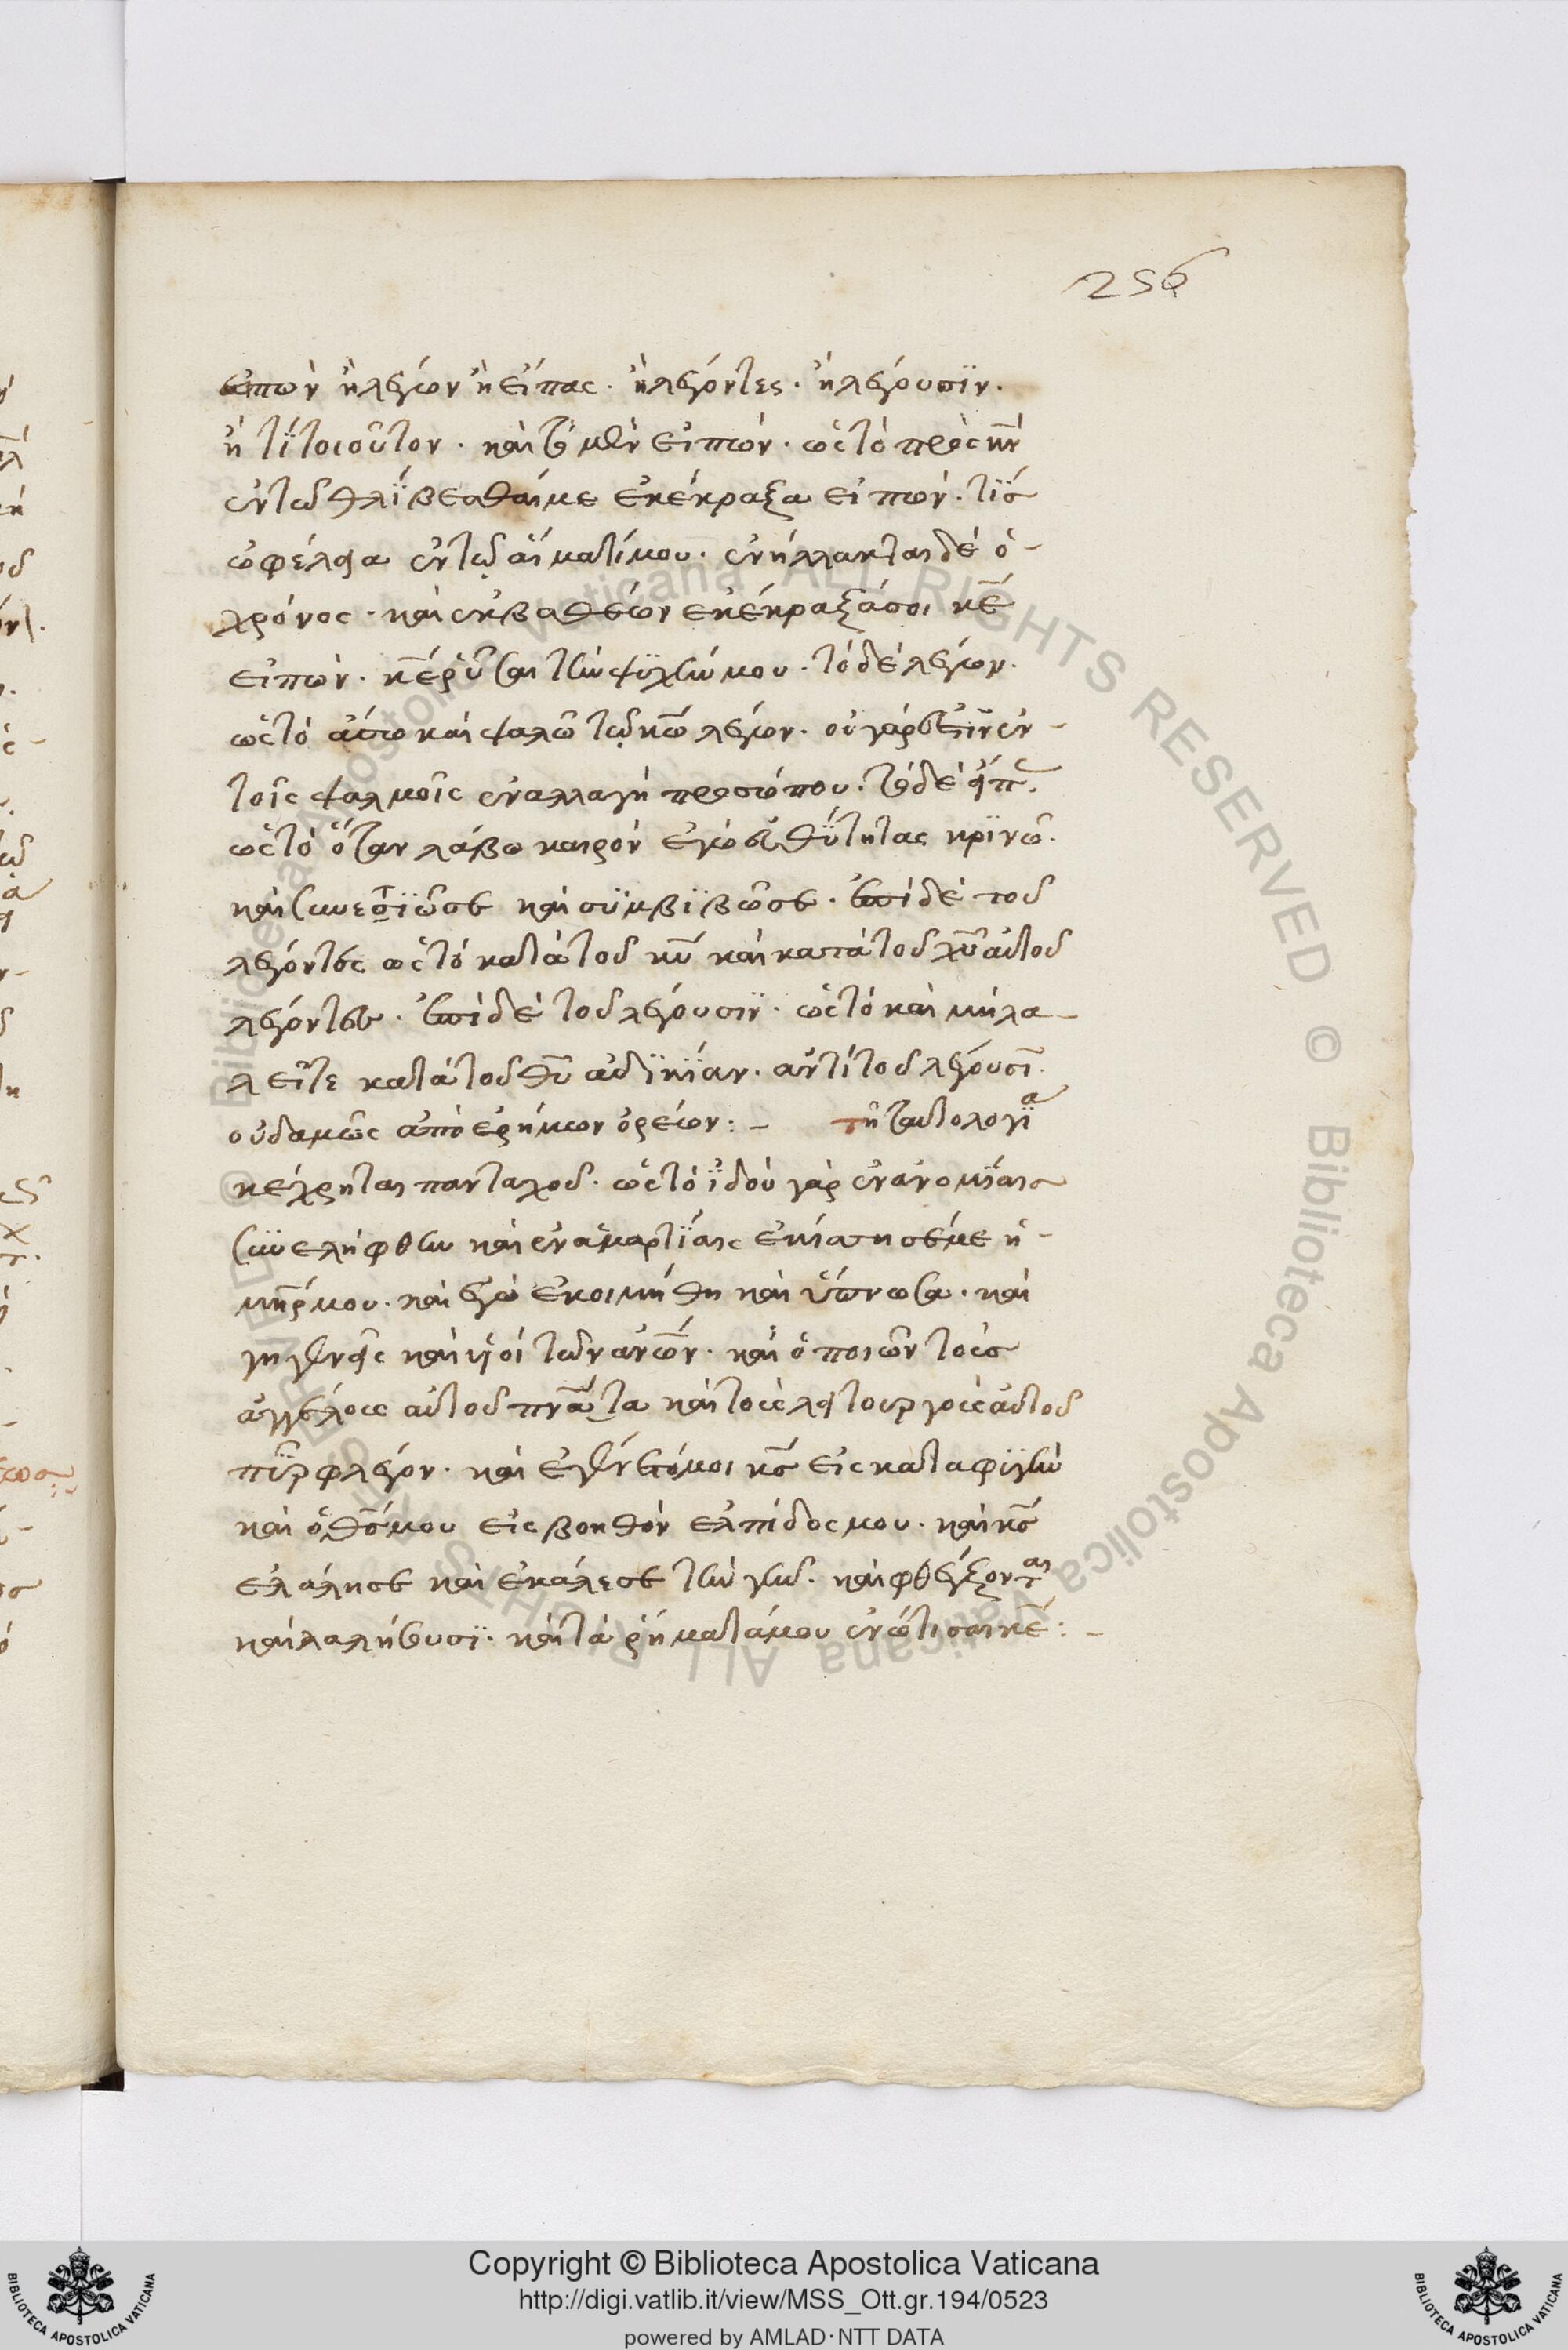 256
εἰπὼν ἢ λέγων ἢ εἶπας. ἢ λέγοντες. ἢ λέγουσϊν.
ἤ τι τοιοῦτον. καὶ τὸ μὲν εἰπών. ὡς τὸ πρὸς κν
ἐν τῶ θλίβεσθαί με ἐκέκραξα εἰπών. τίς
ὠφέλεια ἐν τῷ αἵματί μου. ἐνήλλακται δὲ ὁ
χρόνος. καὶ ἐκ βαθέων ἐκέκραξά σοι κε
εἰπών. κε ῥῦσαι τὴν ψϋχήν μου. τὸ δὲ λέγων.
ὡς τὸ ἄσω καὶ ψαλῶ τῷ κω λέγων. οὐ γάρ ἐστιν ἐν
τοῖς ψαλμοῖς ἐναλλαγὴ προσώπου. τὸ δὲ εἶπ.
ὡς τὸ ὅταν λάβω καιρὸν ἐγὼ εὐθύτητας κρϊνῶ.
καὶ συνετϊῶ σε καὶ σϋμβϊβῶ σε. ἐπὶ δὲ τοῦ
λέγοντες ὡς τὸ κατὰ τοῦ κυ καὶ κατὰ τοῦ χυ αὐτοῦ
λέγοντες. ἐπὶ δὲ τοῦ λέγουσϊν. ὡς τὸ καὶ μὴ λα
λεῖτε κατὰ τοῦ θυ ἀδϊκίαν. ἀντὶ τοῦ λέγουσι.
οὐδαμῶς ἀπὸ ἐρήμων ὀρέων: – τῆ ταυτολογία
κέχρηται πανταχοῦ. ὡς τὸ ϊδοὺ γὰρ ἐν ἀνομΐαις
συνελήφθην καὶ ἐν ἁμαρτΐαις ἐκίσσησέ με ἡ
μηρ μου. καὶ ἐγὼ ἐκοιμήθη καὶ ὕπνωσα. καὶ
γηγενεῖς καὶ υἱοὶ τῶν ανων. καὶ ὁ ποιῶν τοὺς
ἀγγέλους αὐτοῦ πνατα καὶ τοὺς λειτουργοὺς αὐτοῦ
πῦρ φλέγον. καὶ ἐγένετό μοι κς εἰς καταφϋγὴν
καὶ ὁ θς μου εἰς βοηθὸν ἐλπίδος μου. καὶ κς
ἐλάλησε καὶ ἐκάλεσε τὴν γῆν. καὶ φθέγξονται
καὶ λαλήσουσϊ. καὶ τὰ ῥήματά μου ἐνώτισαι κε: –
Copyright © Biblioteca Apostolica Vaticana
http://digi.vatlib.it/view/MSS_Ott.gr.194/0523
powered by AMLAD·NTT DATA